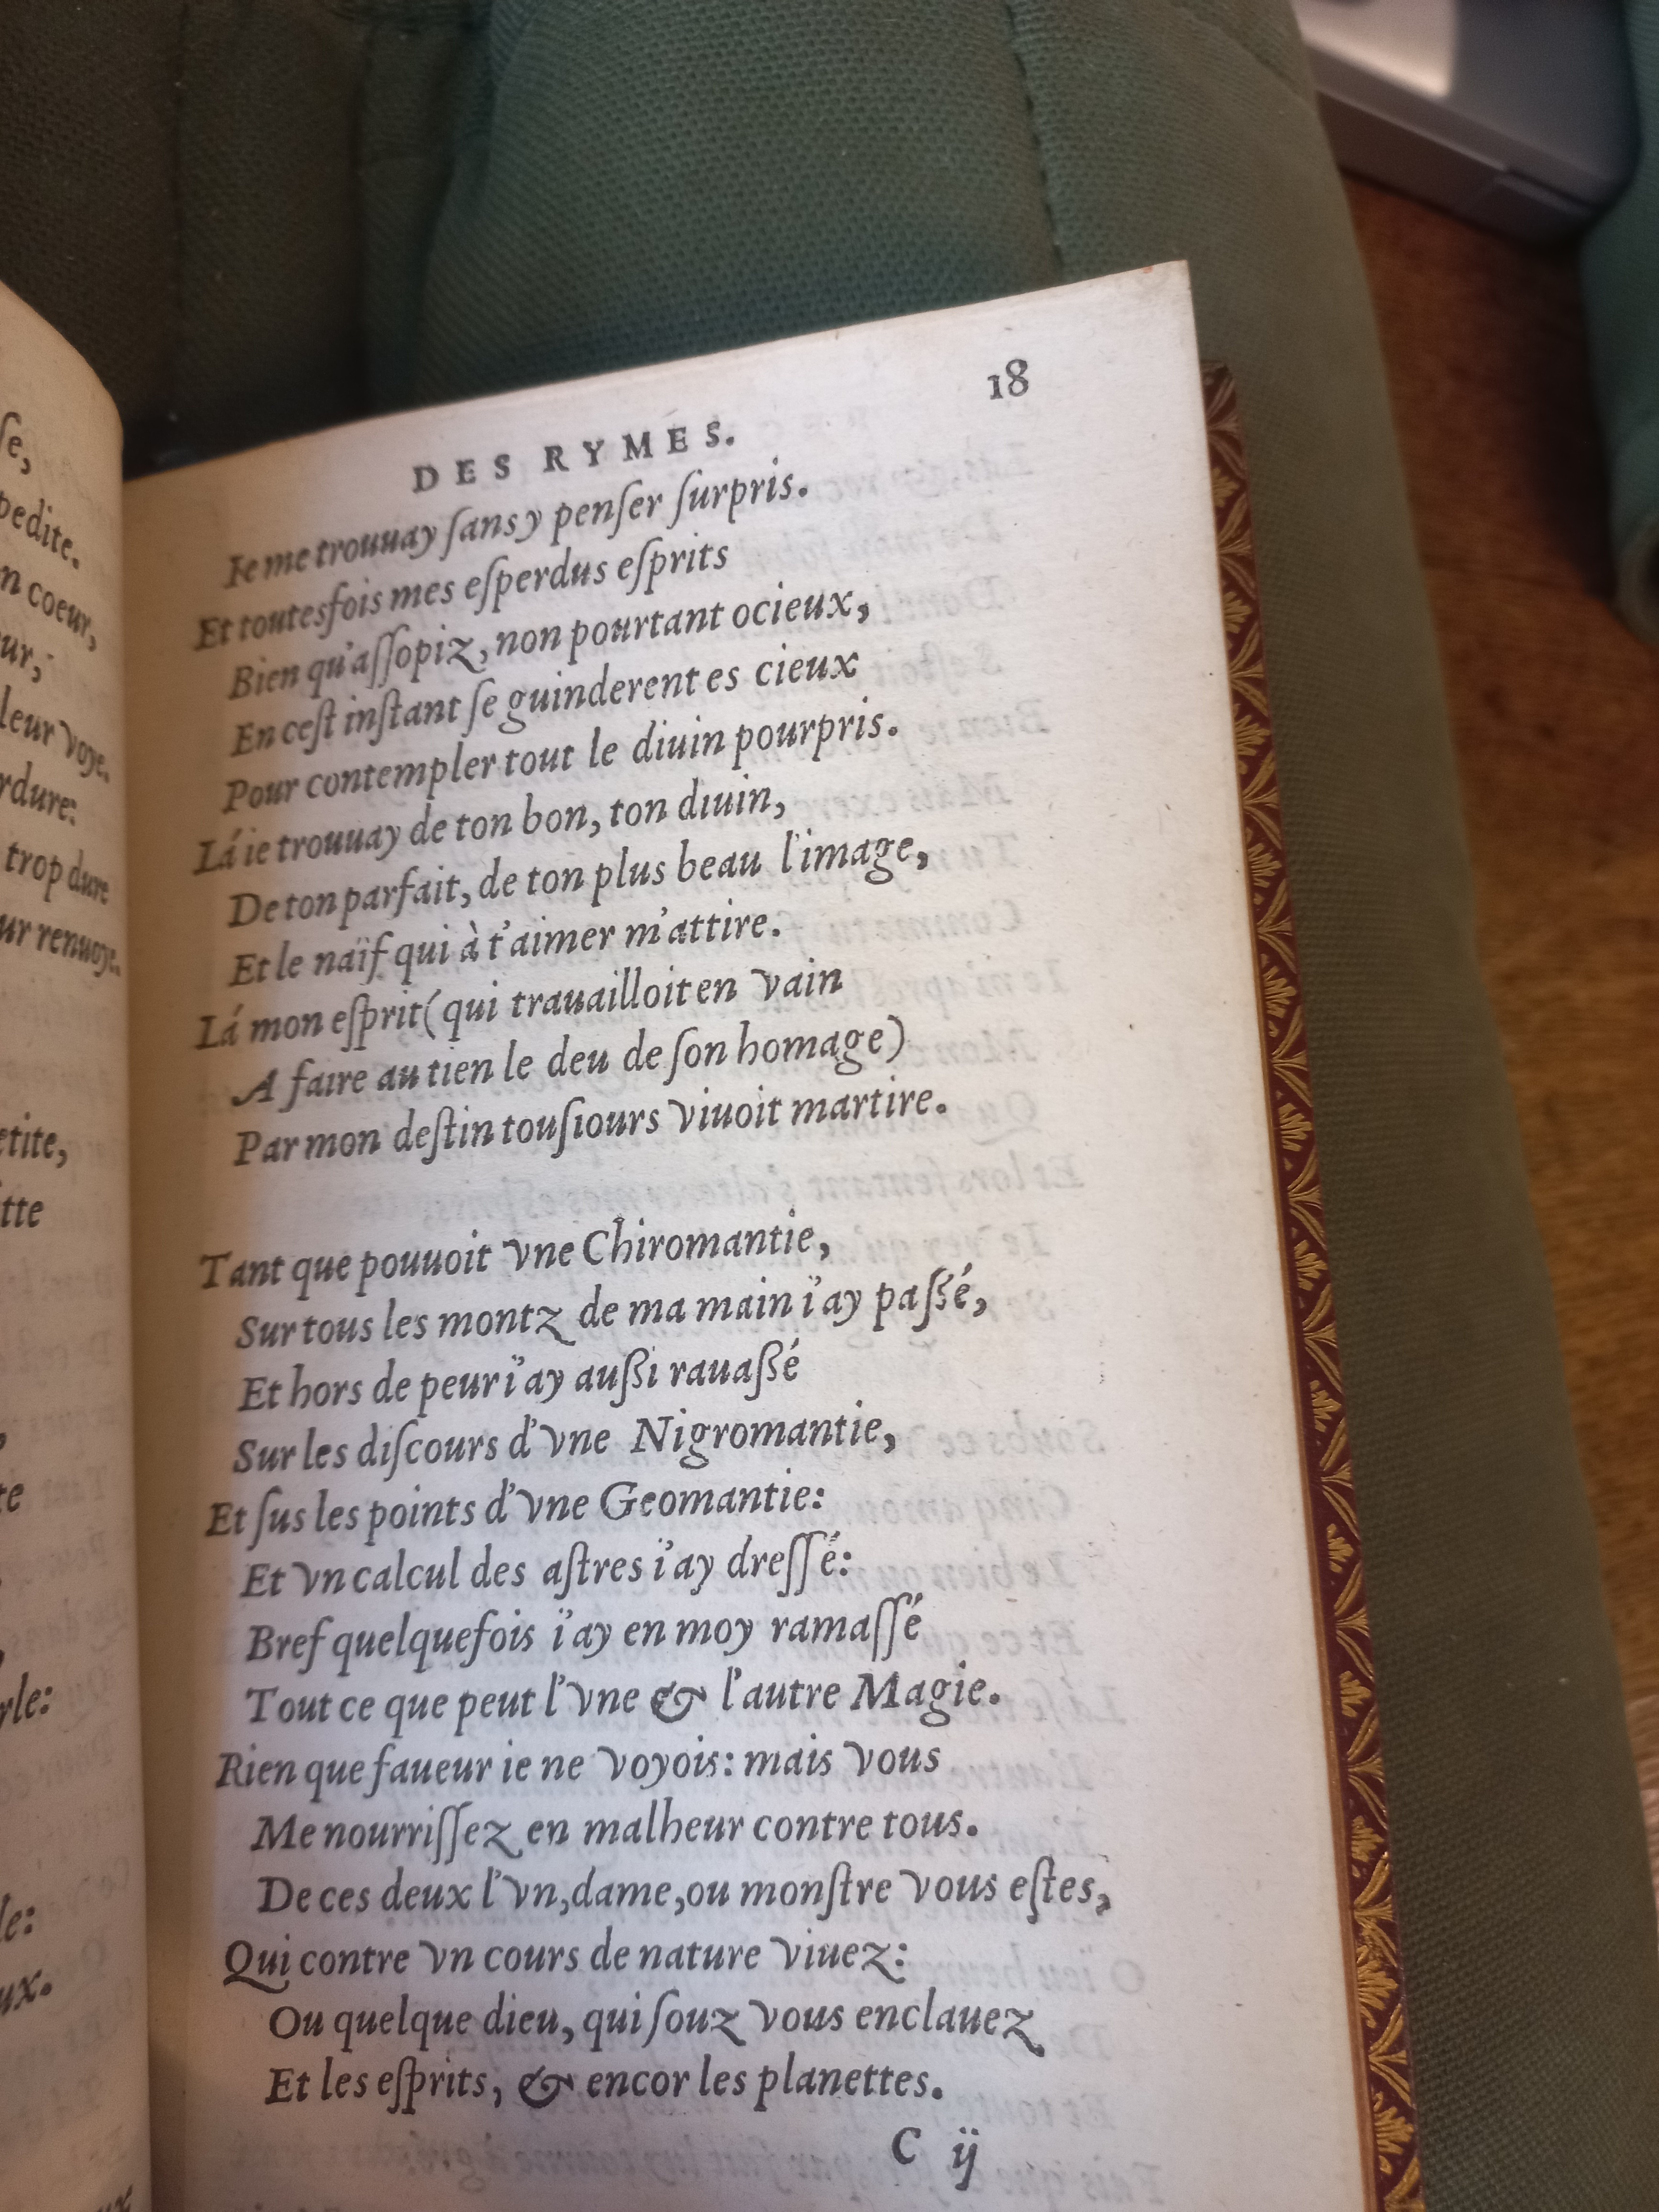 ſe,
pedite.
n coeur,
ur,
leur voye.
rdure:
trop dure
ur renuoye.
etite,
tte
te
rle:
le:
ux.
18
DES RYMES.
Ie me trouuay ſans y penſer ſurpris.
Et toutesfois mes eſperdus eſprits
Bien qu'aſſopiz, non pourtant ocieux,
En ceſt inſtant ſe guinderent es cieux
Pour contempler tout le diuin pourpris.
Lá ie trouuay de ton bon, ton diuin,
De ton parfait, de ton plus beau l'image,
Et le naïf qui à t'aimer m'attire.
Lá mon eſprit (qui trauailloit en vain
A faire au tien le deu de ſon homage)
Par mon deſtin touſiours viuoit martire.
Tant que pouuoit vne Chiromantie,
Sur tous les montz de ma main i'ay paſsé,
Et hors de peur i'ay auſsi rauaſsé
Sur les diſcours d'vne Nigromantie,
Et ſus les points d'vne Geomantie:
Et vn calcul des aſtres i'ay dreſſé:
Bref quelquefois i'ay en moy ramaſſé
Tout ce que peut l'vne & l'autre Magie.
Rien que faueur ie ne voyois: mais vous
Me nourriſſez en malheur contre tous.
De ces deux l'vn, dame, ou monſtre vous eſtes,
Qui contre vn cours de nature viuez:
Ou quelque dieu, qui ſouz vous enclauez
Et les eſprits, & encor les planettes.
C ij